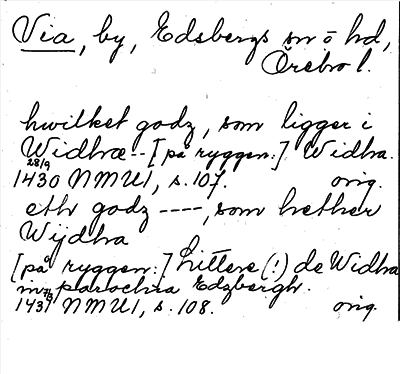 Via, by, Edsbergs sn o hd,
Örebro l.
hwilket godz, som ligger i
Widhræ--[på ryggen:] Widha.
28/9
1430 NMU1, s. 107. orig.
eth godz ----, som hether
Wijdha
[på ryggen:] Littere (!) de Widha
in parochia Edzbergh.
1431 NMU1, s. 108. orig.